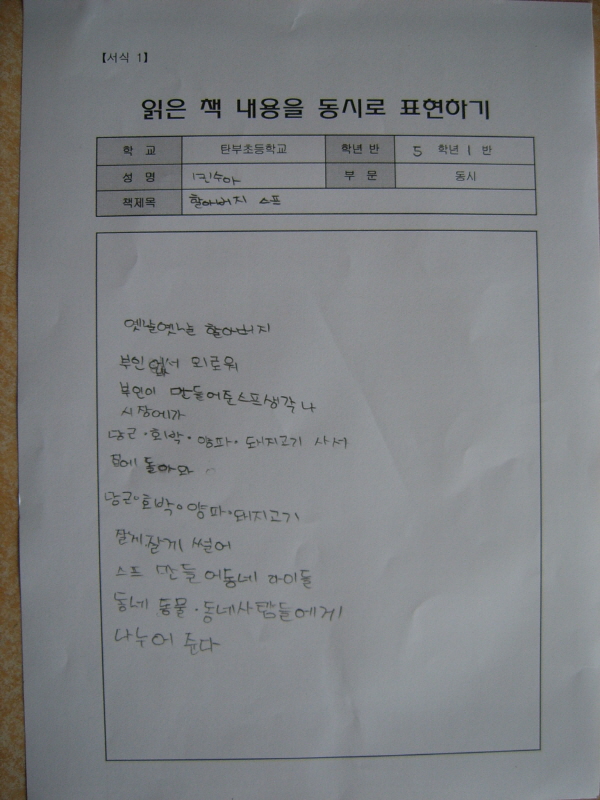 【서식 1】
읽은 책 내용을 동시로 표현하기
학 교 탄부초등학교 학년 반 5 학년 1 반
성 명 부 문 동시
책제목 할아버지 스프
옛날옛날 할아버지
부인 없서 외로워
부인이 만들어준스프생각 나
시장에가
당근·호박·양파·돼지고기 사서
집에 돌아와
당근·호박·양파·돼지고기
잘게잘게 썰어
스프 만들어동네 아이들
동네 동물·동네사람들에게
나누어 준다